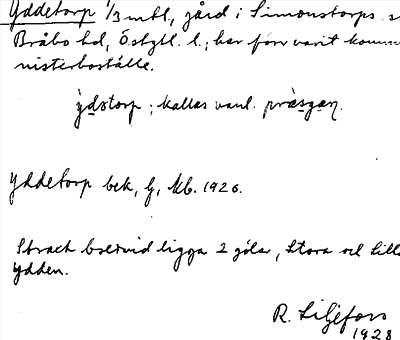 Yddetorp 1/3 mtl, gård i Simonstorps
Bråbo hd, Östgtl. l.; har förr varit komm
nisterboställe.
ỳdstorp; kallas vanl. prä̀sgan.
Yddetorp bek, G, kb. 1926.
Strax bredvid ligga 2 gölar, Stora och Lilla
Ydden.
R. Liljefors
1928